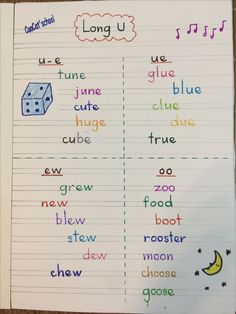 CasCas' school
Long U
u-e
tune
june
cute
huge
cube
ue
glue
blue
clue
due
true
ew
grew
new
blew
stew
dew
chew
oo
zoo
food
boot
rooster
moon
choose
goose